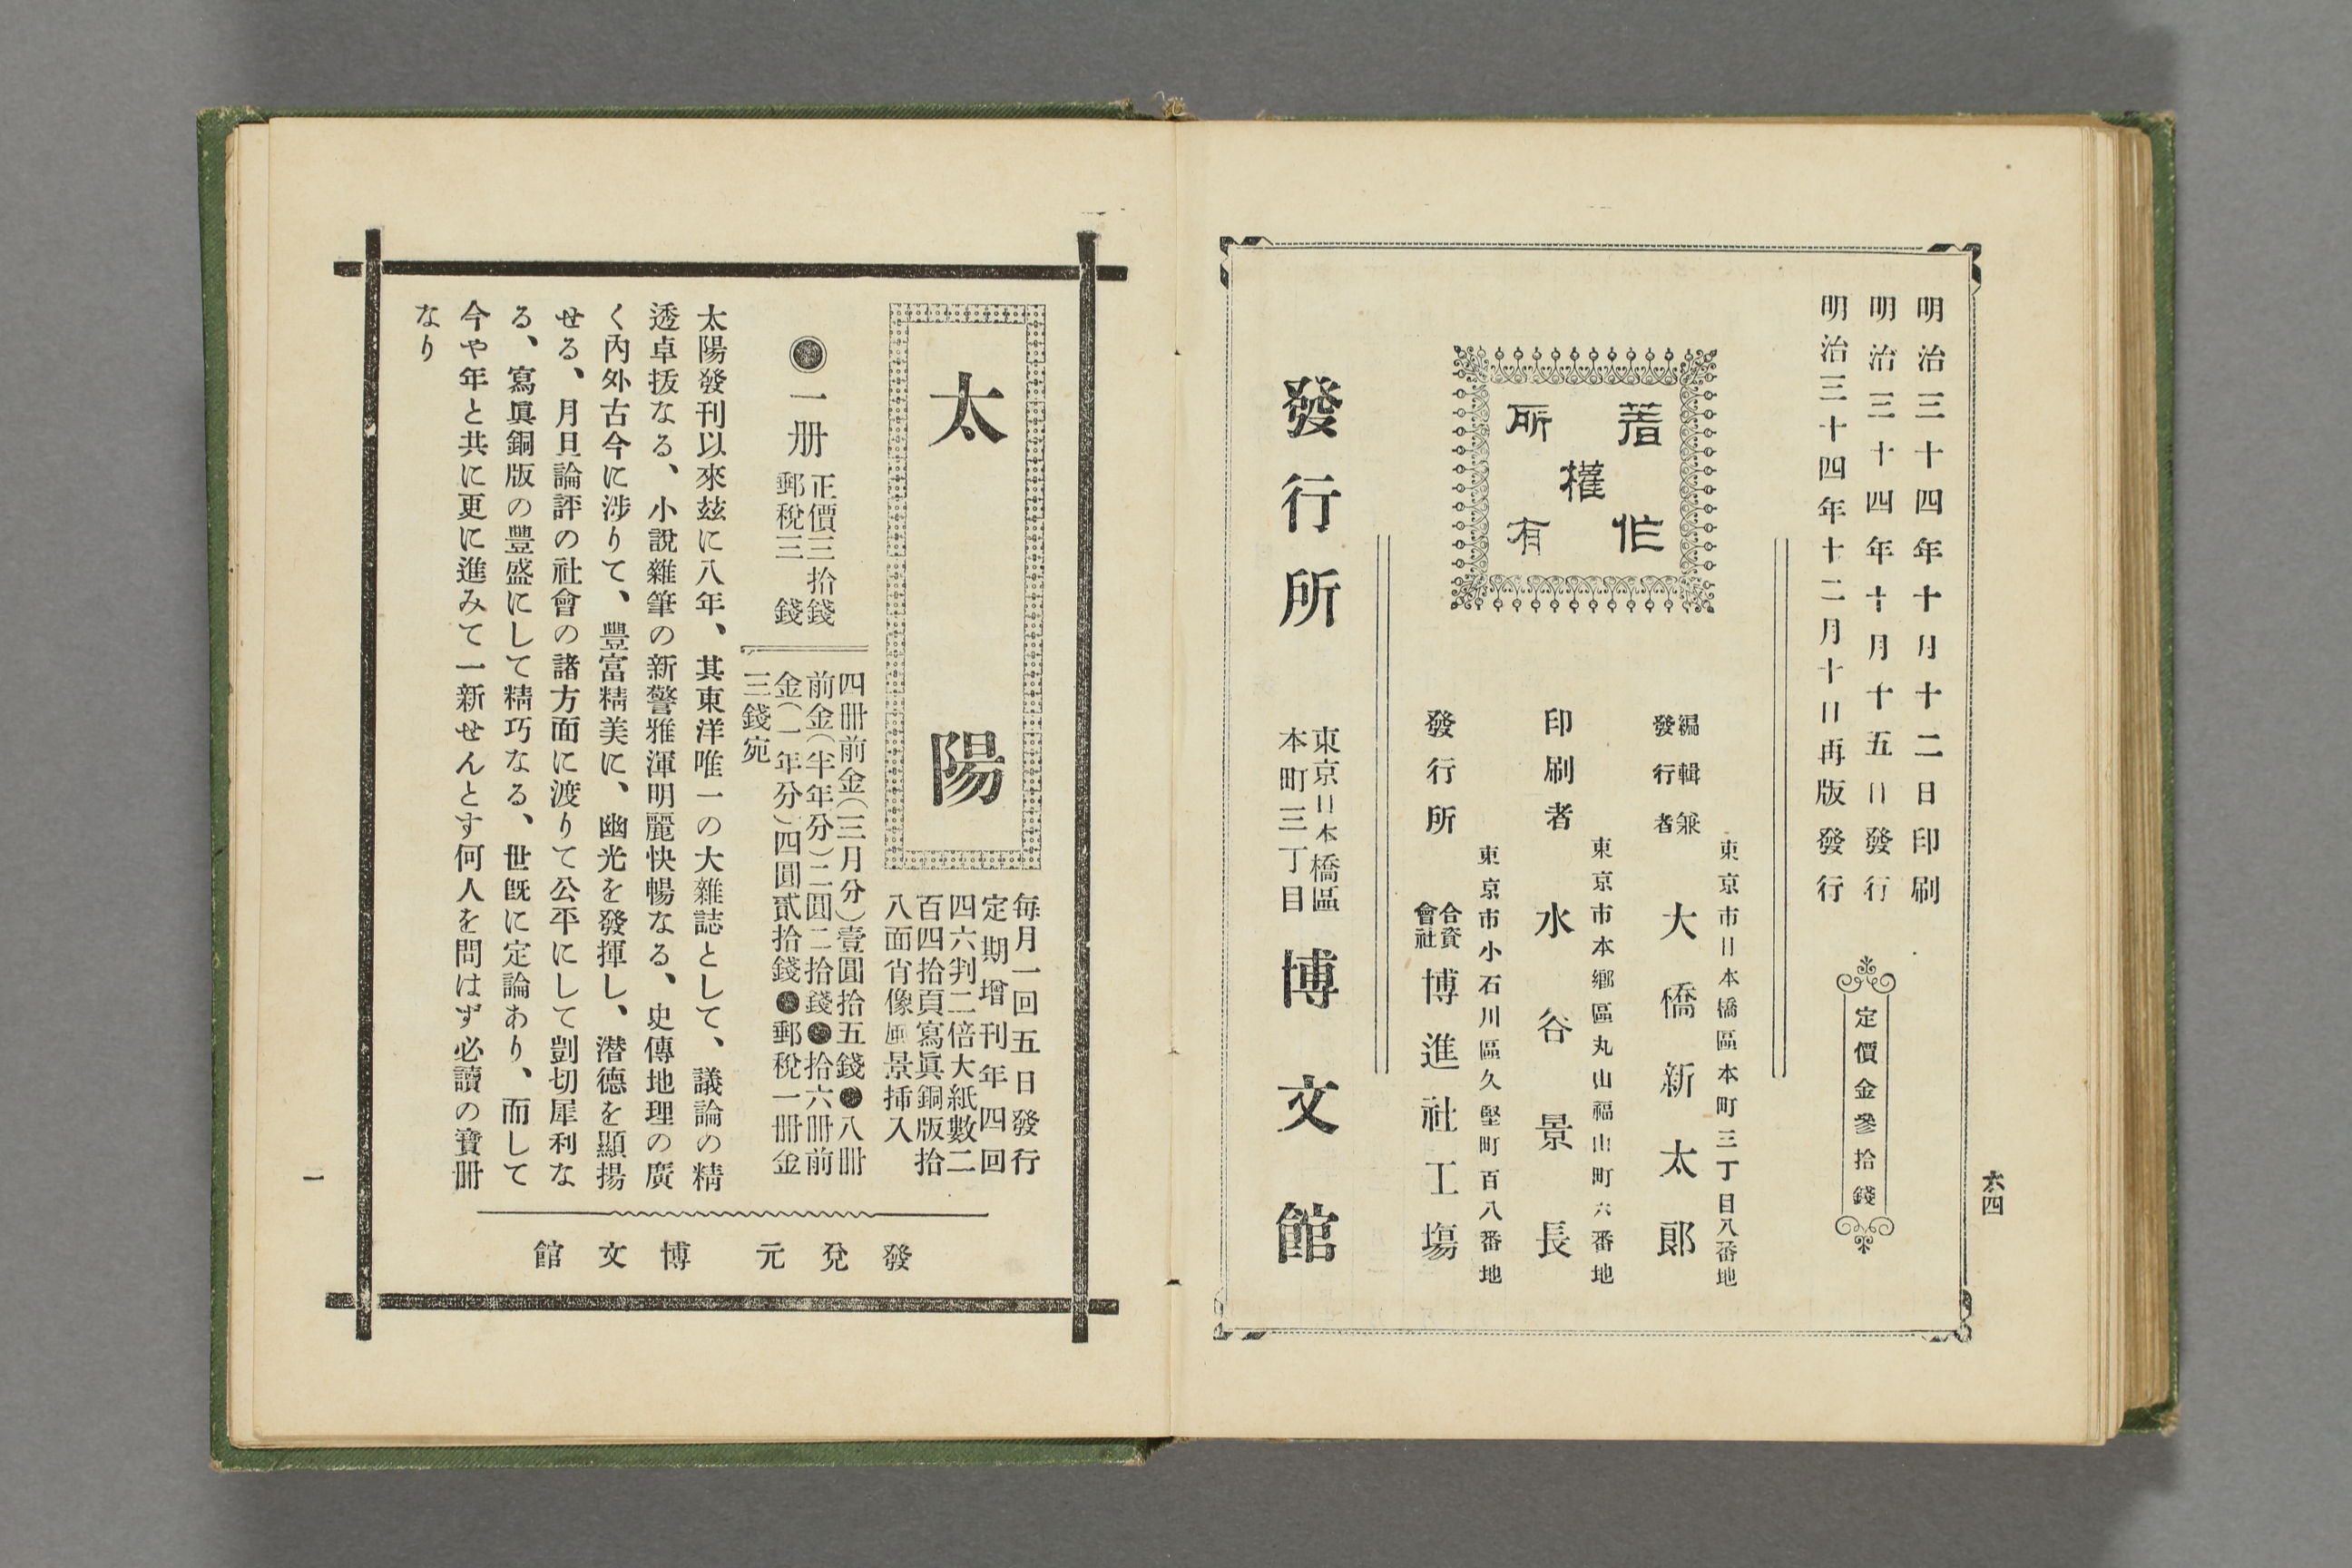 明治三十四年十月十二日印刷
明治三十四年十月十五日發行
明治三十四年十二月十日再版發行
定價金參拾錢
著作權所有
編輯兼
發行者
東京市日本橋區本町三丁目八番地
大橋新太郎
東京市本鄉區丸山福山町六番地
印刷者 水谷景長
東京市小石川區久堅町百八番地
發行所 合資會社 博進社工場
發行所
東京日本橋區
本町三丁目
博文館
六四
太陽
每月一回五日發行
定期增刊年四回
四六判二倍大紙數二
百四拾頁寫眞銅版拾
八面肖像風景挿入
●一册
正價三拾錢
郵稅三錢
四冊前金(三月分)壹圓拾五錢●八冊
前金(半年分)二圓二拾錢●拾六冊前
金(一年分)四圓貳拾錢●郵稅一冊金
三錢宛
太陽發刊以來玆に八年、其東洋唯一の大雜誌として、議論の精
透卓拔なる、小說雜筆の新警雅渾明麗快暢なる、史傳地理の廣
く內外古今に涉りて、豐富精美に、幽光を發揮し、潛德を顯揚
せる、月旦論評の社會の諸方面に渡りて公平にして剴切犀利な
る、寫眞銅版の豐盛にして精巧なる、世既に定論あり、而して
今や年と共に更に進みて一新せんとす何人を問はず必讀の寶冊
なり
發兌元 博文館
一